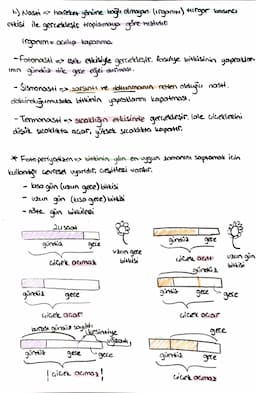 b) Nasti => hareket yönüne bağlı olmayan (irganım) turgor basıncı
etkisi ile gerçekleşir tropizmaya göre hızlıdır.
irganım= açılıp kapanma.
- Fotonasti => ışık etkisiyle gerçekleşir. fasulye bitkisinin yaprakları-
nın gündüz ile gece eğik durması.
- Sismonasti => sarsıntı ve dokunmanın neden olduğu nasti.
dokunduğumuzda bitkinin yapraklarını kapatması.
- Termonasti => sıcaklığın etkisinde gerçekleşir. lale çiçeklerini
düşük sıcaklıkta açar, yüksek sıcaklıkta kapatır.
* Fotoperiyodizm => bitkinin gün en uygun zamanını saptamak için
kullandığı çevresel uyarıdır. çeşitleri vardır.
- kısa gün (uzun gece) bitkisi
- uzun gün (kısa gece) bitkisi
- nötr gün bitkileri
24 saat
gündüz gece
çiçek açmaz
uzun gece
bitkisi
gündüz gece
çiçek açar
uzun gün
bitkisi
gündüz gece
çiçek açar
gündüz gece
çiçek açar
gündüz gece
! çiçek açmaz !
gece
gündüz gece
çiçek açmaz